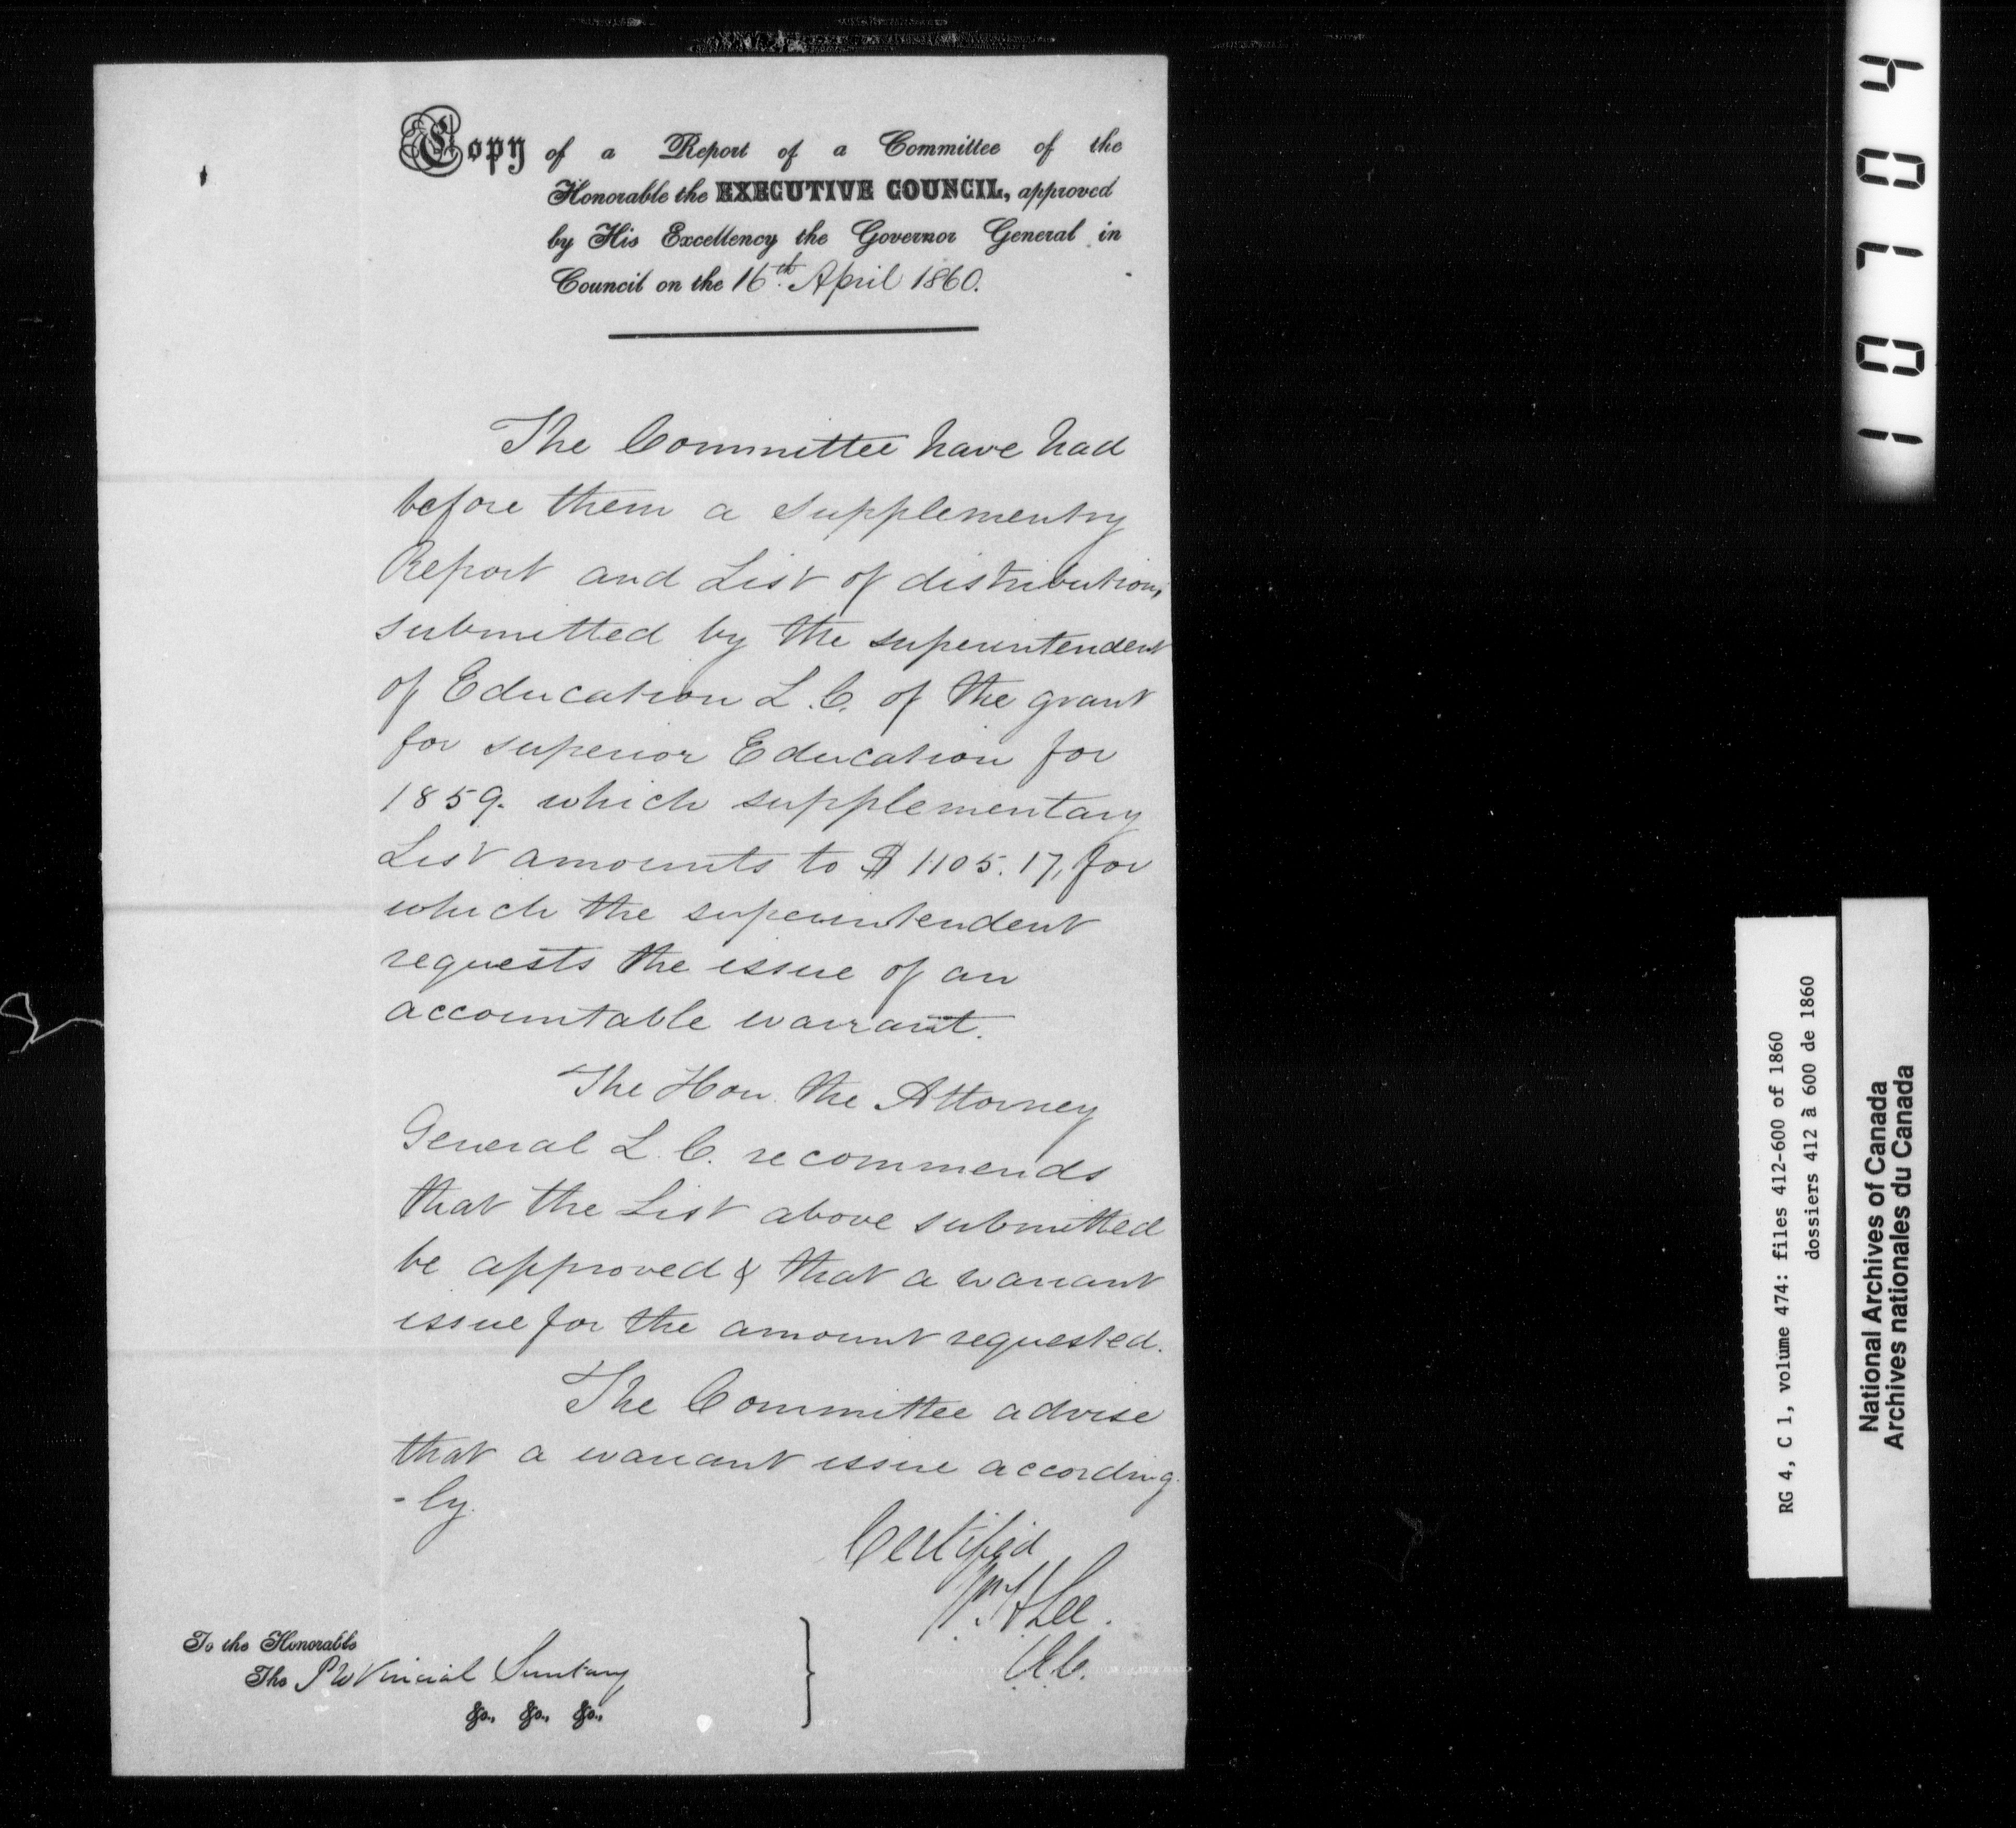 Copy of a Report of a Committee of the
Honorable the EXECUTIVE COUNCIL, approved
by His Excellency the Governor General in
Council on the 16th. April 1860.
The Committee have had
before them a supplementry
Report and List of distribution,
submitted by the superintendent
of Education L.C. of the grant
for superior Education for
1859. which supplementary
List amounts to $ 1105.17, for
which the superintendent
requests the issue of an
accountable warrant.
The Hon. the Attorney
General L.C. recommends
that the List above submitted
be approved & that a warrant
issue for the amount requested.
The Committee advise
that a warrant issue according
-ly.
Certified
Wm H Lee.
C.E.C.
To the Honorable
The Provincial Secretary
&c., &c., &c.,
101704
RG 4, C 1, volume 474: files 412-600 of 1860
dossiers 412 à 600 de 1860
National Archives of Canada
Archives nationales du Canada